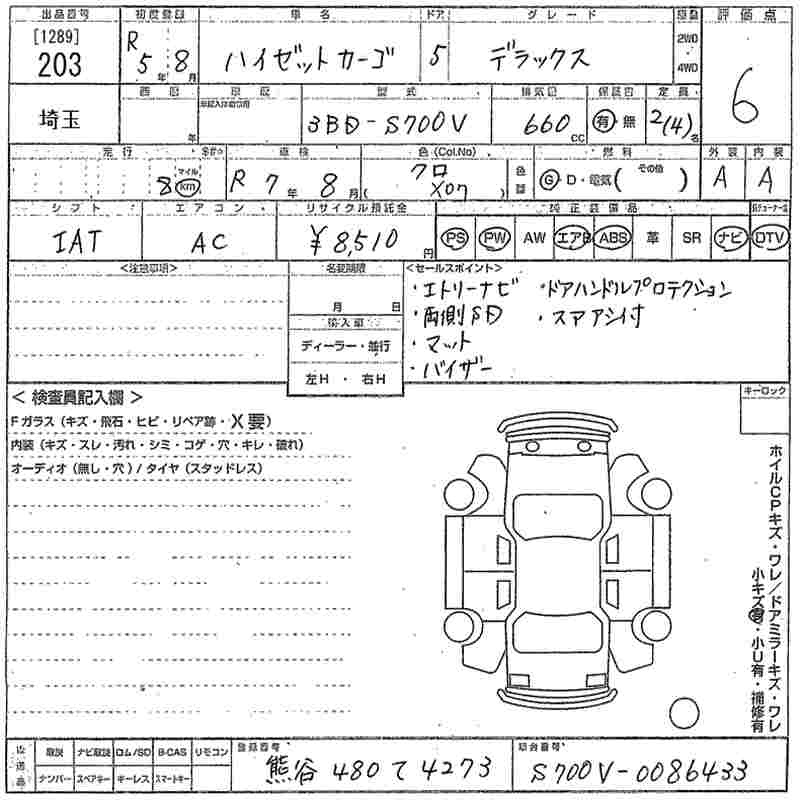 出品番号 初度登録 車名 ドア グレード 駆動 評価点
[1289] 203 R 5年 8月 ハイゼットカーゴ 5 デラックス 2WD 4WD 6
埼玉 車歴 型式 排気量 保証書 定員
年 3BD-S700V 660 CC 有・無 2(4)名
走行 車検 色(Col.No) 燃料 その他 外装 内装
8 マイル km R 7年 8月 クロ X07 G・D・電気( ) A A
シフト エアコン リサイクル預託金 純正装備品
IAT AC ¥8,510円 PS PW AW エアB ABS 革 SR ナビ DTV
<注意事項> 名変期限 <セールスポイント>
月 日 ・エトリーナビ ・ドアハンドルプロテクション
輸入車 ・両側SD ・スマアシ付
ディーラー・並行 ・マット
左H・右H ・バイザー
< 検査員記入欄 > キーロック
Fガラス(キズ・飛石・ヒビ・リペア跡・X要)
内装(キズ・スレ・汚れ・シミ・コゲ・穴・キレ・破れ)
オーディオ(無し・穴)/タイヤ(スタッドレス)
ホイルCPキズ・ワレ/ドアミラーキズ・ワレ
小キズ有・小U有・補修有
後送品 取説 ナビ取説 ロム/SD B-CAS リモコン 登録番号 車台番号
ナンバー スペアキー キーレス スマートキー 熊谷 480 て 4273 S700V-0086433